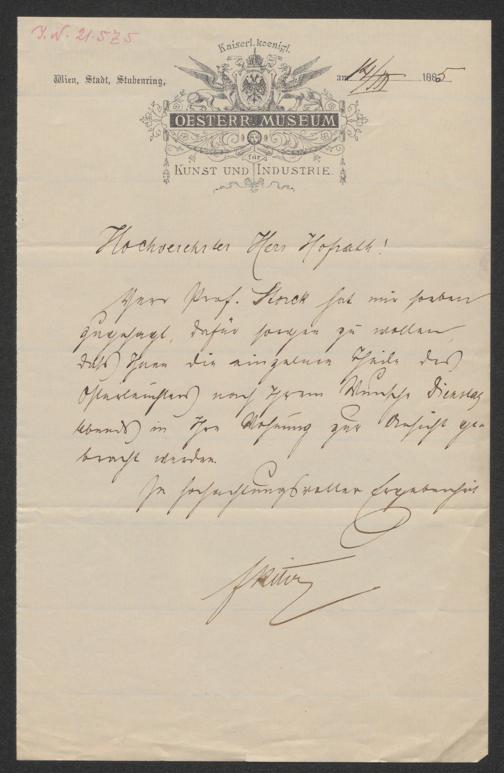 J. N. 21.575
Kaiserl. koenigl.
Wien, Stadt, Stubenring, am 14/III 1885
OESTERR. MUSEUM
für
KUNST UND INDUSTRIE.
Hochverehrter Herr Hofrath!
Herr Prof. Storck hat mir soeben
zugesagt, dafür sorgen zu wollen,
daß Ihnen die einzelnen Theile des
Osterleuchters nach Ihrem Wunsche Dienstag
Abends in Ihre Wohnung zur Ansicht ge-
bracht werden.
In hochachtungsvoller Ergebenheit